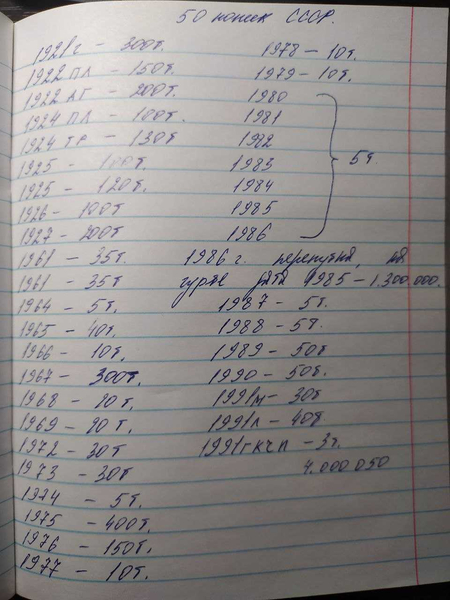 50 копеек СССР.
1921г - 300т.
1922 ПЛ - 150т.
1922 АГ - 200т.
1924 ПЛ - 100т.
1924 ТР - 130т
1925 - 100т.
1925 - 120т.
1926 - 100т
1927 - 200т
1961 - 35т.
1961 - 35т
1964 - 5т.
1965 - 40т.
1966 - 10т.
1967 - 300т.
1968 - 20т.
1969 - 20т.
1972 - 30т
1973 - 30т
1974 - 5т.
1975 - 400т.
1976 - 150т.
1977 - 10т.
1978 - 10т.
1979 - 10т.
1980
1981
1982
1983 5т.
1984
1985
1986
1986 г. перепутка, на
гурте дата 1985 - 1.300.000.
1987 - 5т.
1988 - 5т.
1989 - 50т
1990 - 50т.
1991м - 30т
1991л - 40т.
1991 ГКЧП - 3т.
4.000.050